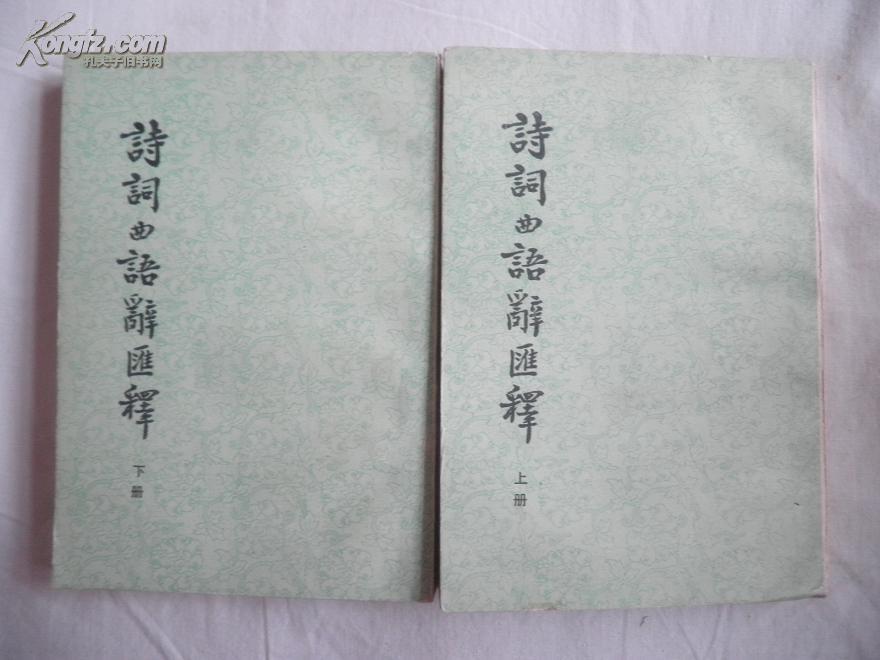 Kongfz.com
孔夫子旧书网
詩詞曲語辭匯釋
下册
詩詞曲語辭匯釋
上册